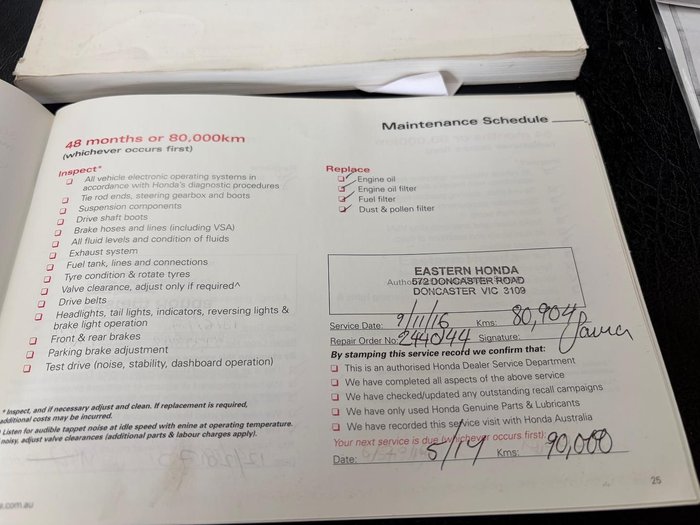 Maintenance Schedule
48 months or 80,000km
(whichever occurs first)
Inspect*
All vehicle electronic operating systems in
accordance with Honda's diagnostic procedures
Tie rod ends, steering gearbox and boots
Suspension components
Drive shaft boots
Brake hoses and lines (including VSA)
All fluid levels and condition of fluids
Exhaust system
Fuel tank, lines and connections
Tyre condition & rotate tyres
Valve clearance, adjust only if required^
Drive belts
Headlights, tail lights, indicators, reversing lights &
brake light operation
Front & rear brakes
Parking brake adjustment
Test drive (noise, stability, dashboard operation)
* Inspect, and if necessary adjust and clean. If replacement is required,
additional costs may be incurred.
Listen for audible tappet noise at idle speed with enine at operating temperature.
noisy, adjust valve clearances (additional parts & labour charges apply).
e.com.au
Replace
Engine oil
Engine oil filter
Fuel filter
Dust & pollen filter
EASTERN HONDA
572 DONCASTER ROAD
DONCASTER VIC 3109
Service Date: 9/11/16 Kms: 80,904
Repair Order No: 244044 Signature:
By stamping this service record we confirm that:
This is an authorised Honda Dealer Service Department
We have completed all aspects of the above service
We have checked/updated any outstanding recall campaigns
We have only used Honda Genuine Parts & Lubricants
We have recorded this service visit with Honda Australia
Your next service is due (whichever occurs first)
Date: 5/17 Kms: 90,000
25